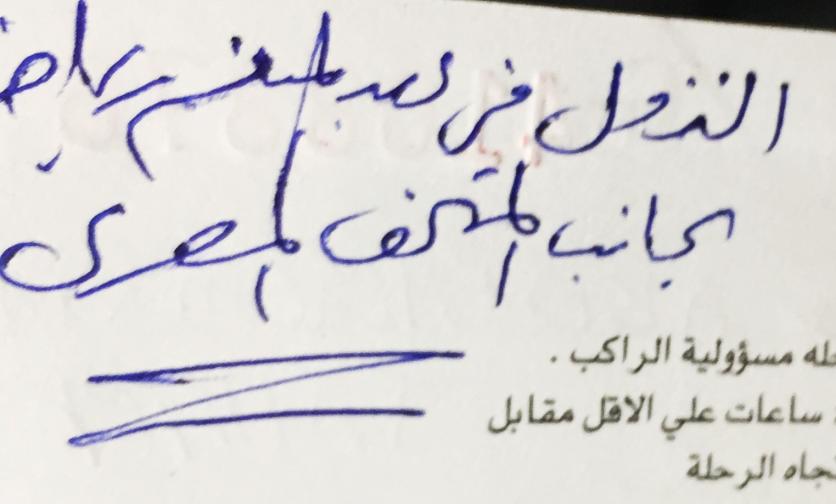 النزول في عبد المنعم رياض
بجانب المتحف المصري
حله مسؤولية الراكب .
ساعات علي الاقل مقابل
تجاه الرحلة